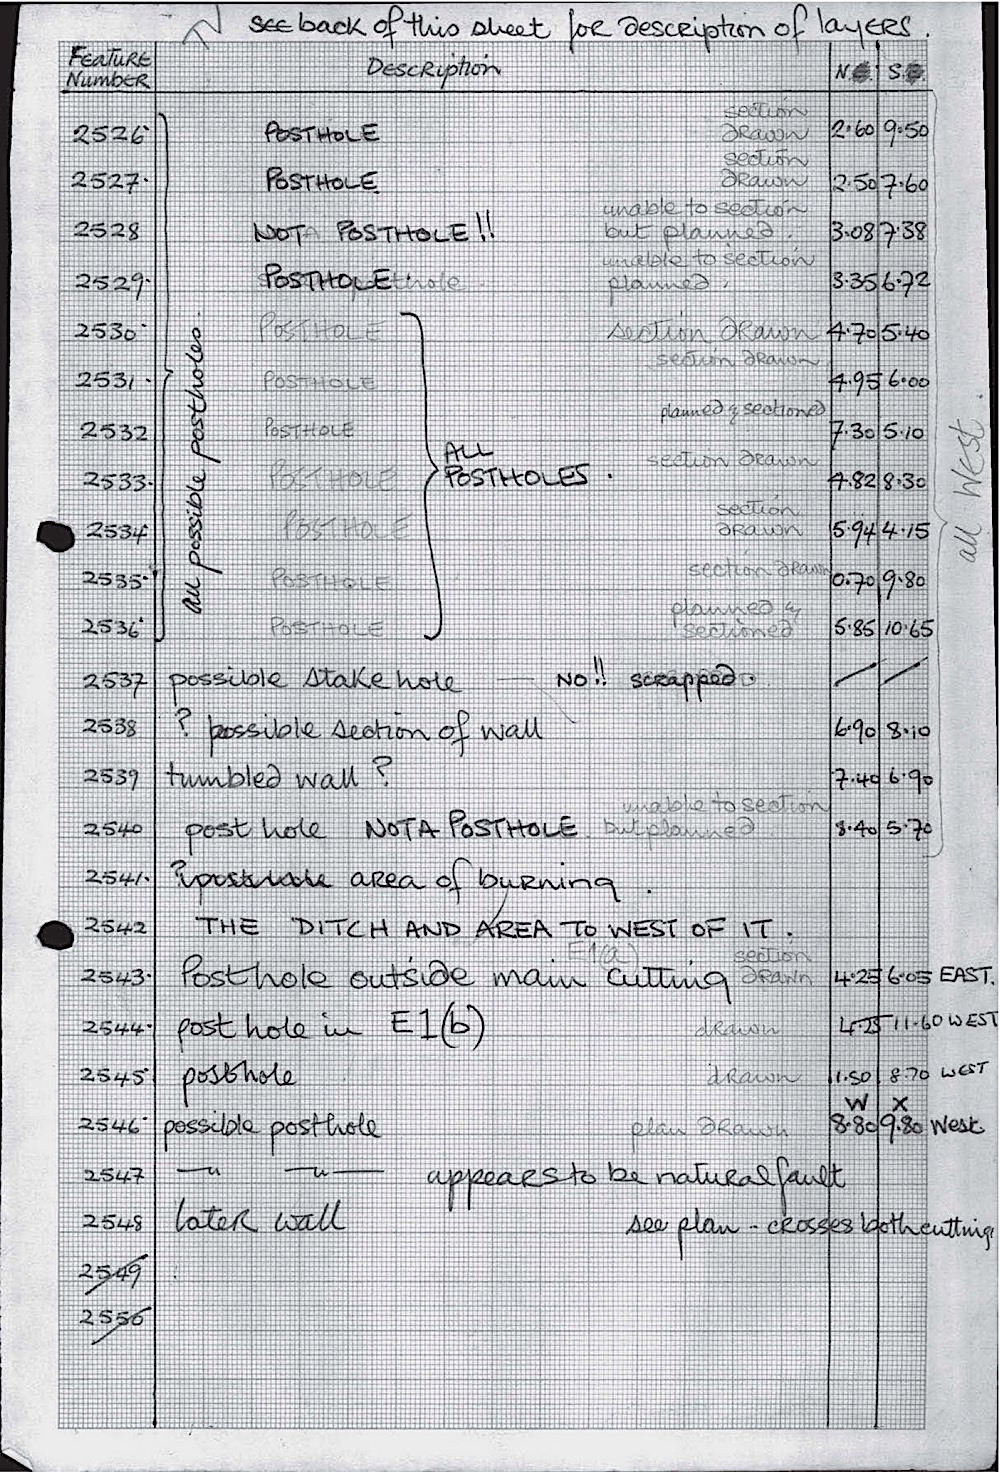 see back of this sheet for description of layers.
Feature Number Description N. S.
2526 POSTHOLE section drawn 2.60 9.50
2527 POSTHOLE section drawn 2.50 7.60
2528 NOT A POSTHOLE!! unable to section but planned. 3.08 7.38
2529 POSTHOLE unable to section planned. 3.35 6.72
2530 POSTHOLE section drawn 4.70 5.40
2531 POSTHOLE section drawn 4.95 6.00
2532 POSTHOLE planned & sectioned 7.30 5.10
all possible postholes.
ALL POSTHOLES.
all West.
2533 POSTHOLE section drawn 4.82 8.30
2534 POSTHOLE section drawn 5.94 4.15
2535 POSTHOLE section drawn 0.70 9.80
2536 POSTHOLE planned & sectioned 5.85 10.65
2537 possible stake hole — NO!! scrapped.
2538 ? possible section of wall 6.90 8.10
2539 tumbled wall? 7.40 6.90
2540 post hole NOT A POSTHOLE. unable to section but planned. 8.40 5.70
2541 ? area of burning.
2542 THE DITCH AND AREA TO WEST OF IT.
2543 Posthole outside main E1(a) cutting section drawn 4.25 6.05 EAST.
2544 post hole in E1(b) drawn 4.25 11.60 WEST
2545 posthole drawn 1.50 8.70 WEST
W X
2546 possible posthole plan drawn 8.80 9.80 West
2547 —"— —"— appears to be natural fault
2548 later wall see plan - crosses both cuttings
2549
2550